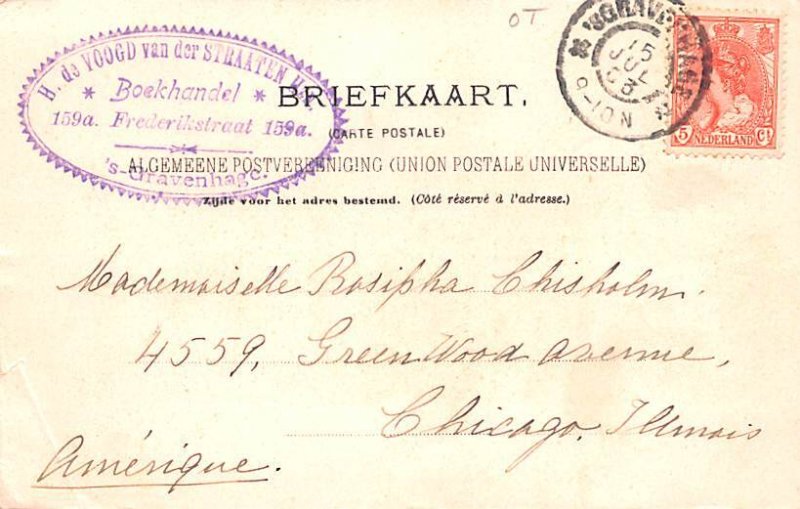 OT
H. de VOOGD van der STRAATEN
* Boekhandel *
159a. Frederikstraat 159a.
's-Gravenhage.
BRIEFKAART.
(CARTE POSTALE)
ALGEMEENE POSTVEREENIGING (UNION POSTALE UNIVERSELLE)
Zijde voor het adres bestemd. (Côté réservé à l'adresse.)
'SGRAVENHAGE
15
JUL
03
9-10N
5 Ct
NEDERLAND
Mademoiselle Rosipha Chisholm.
4559, GreenWood avenue,
Chicago, Illinois
Amérique.